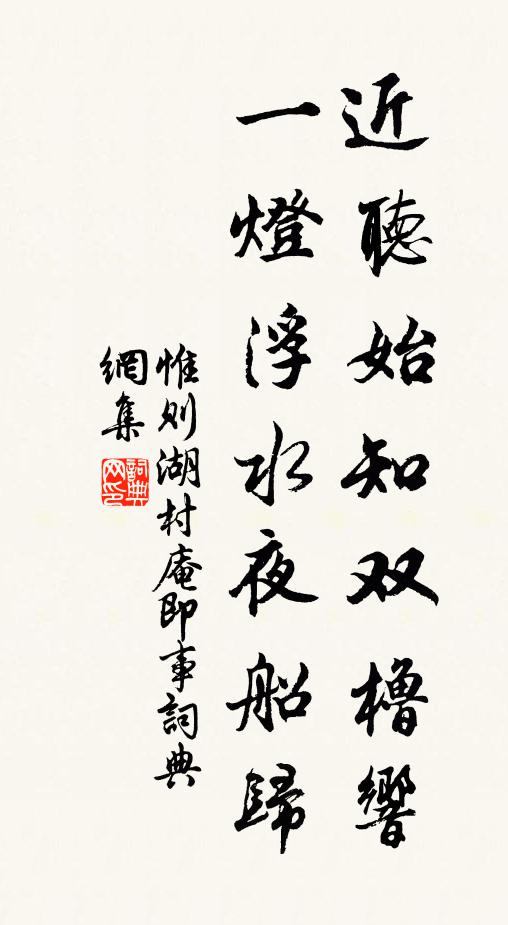 近聽始知双櫓響
一燈浮水夜船歸
惟则湖村庵即事詞典
網集
詞典
网印